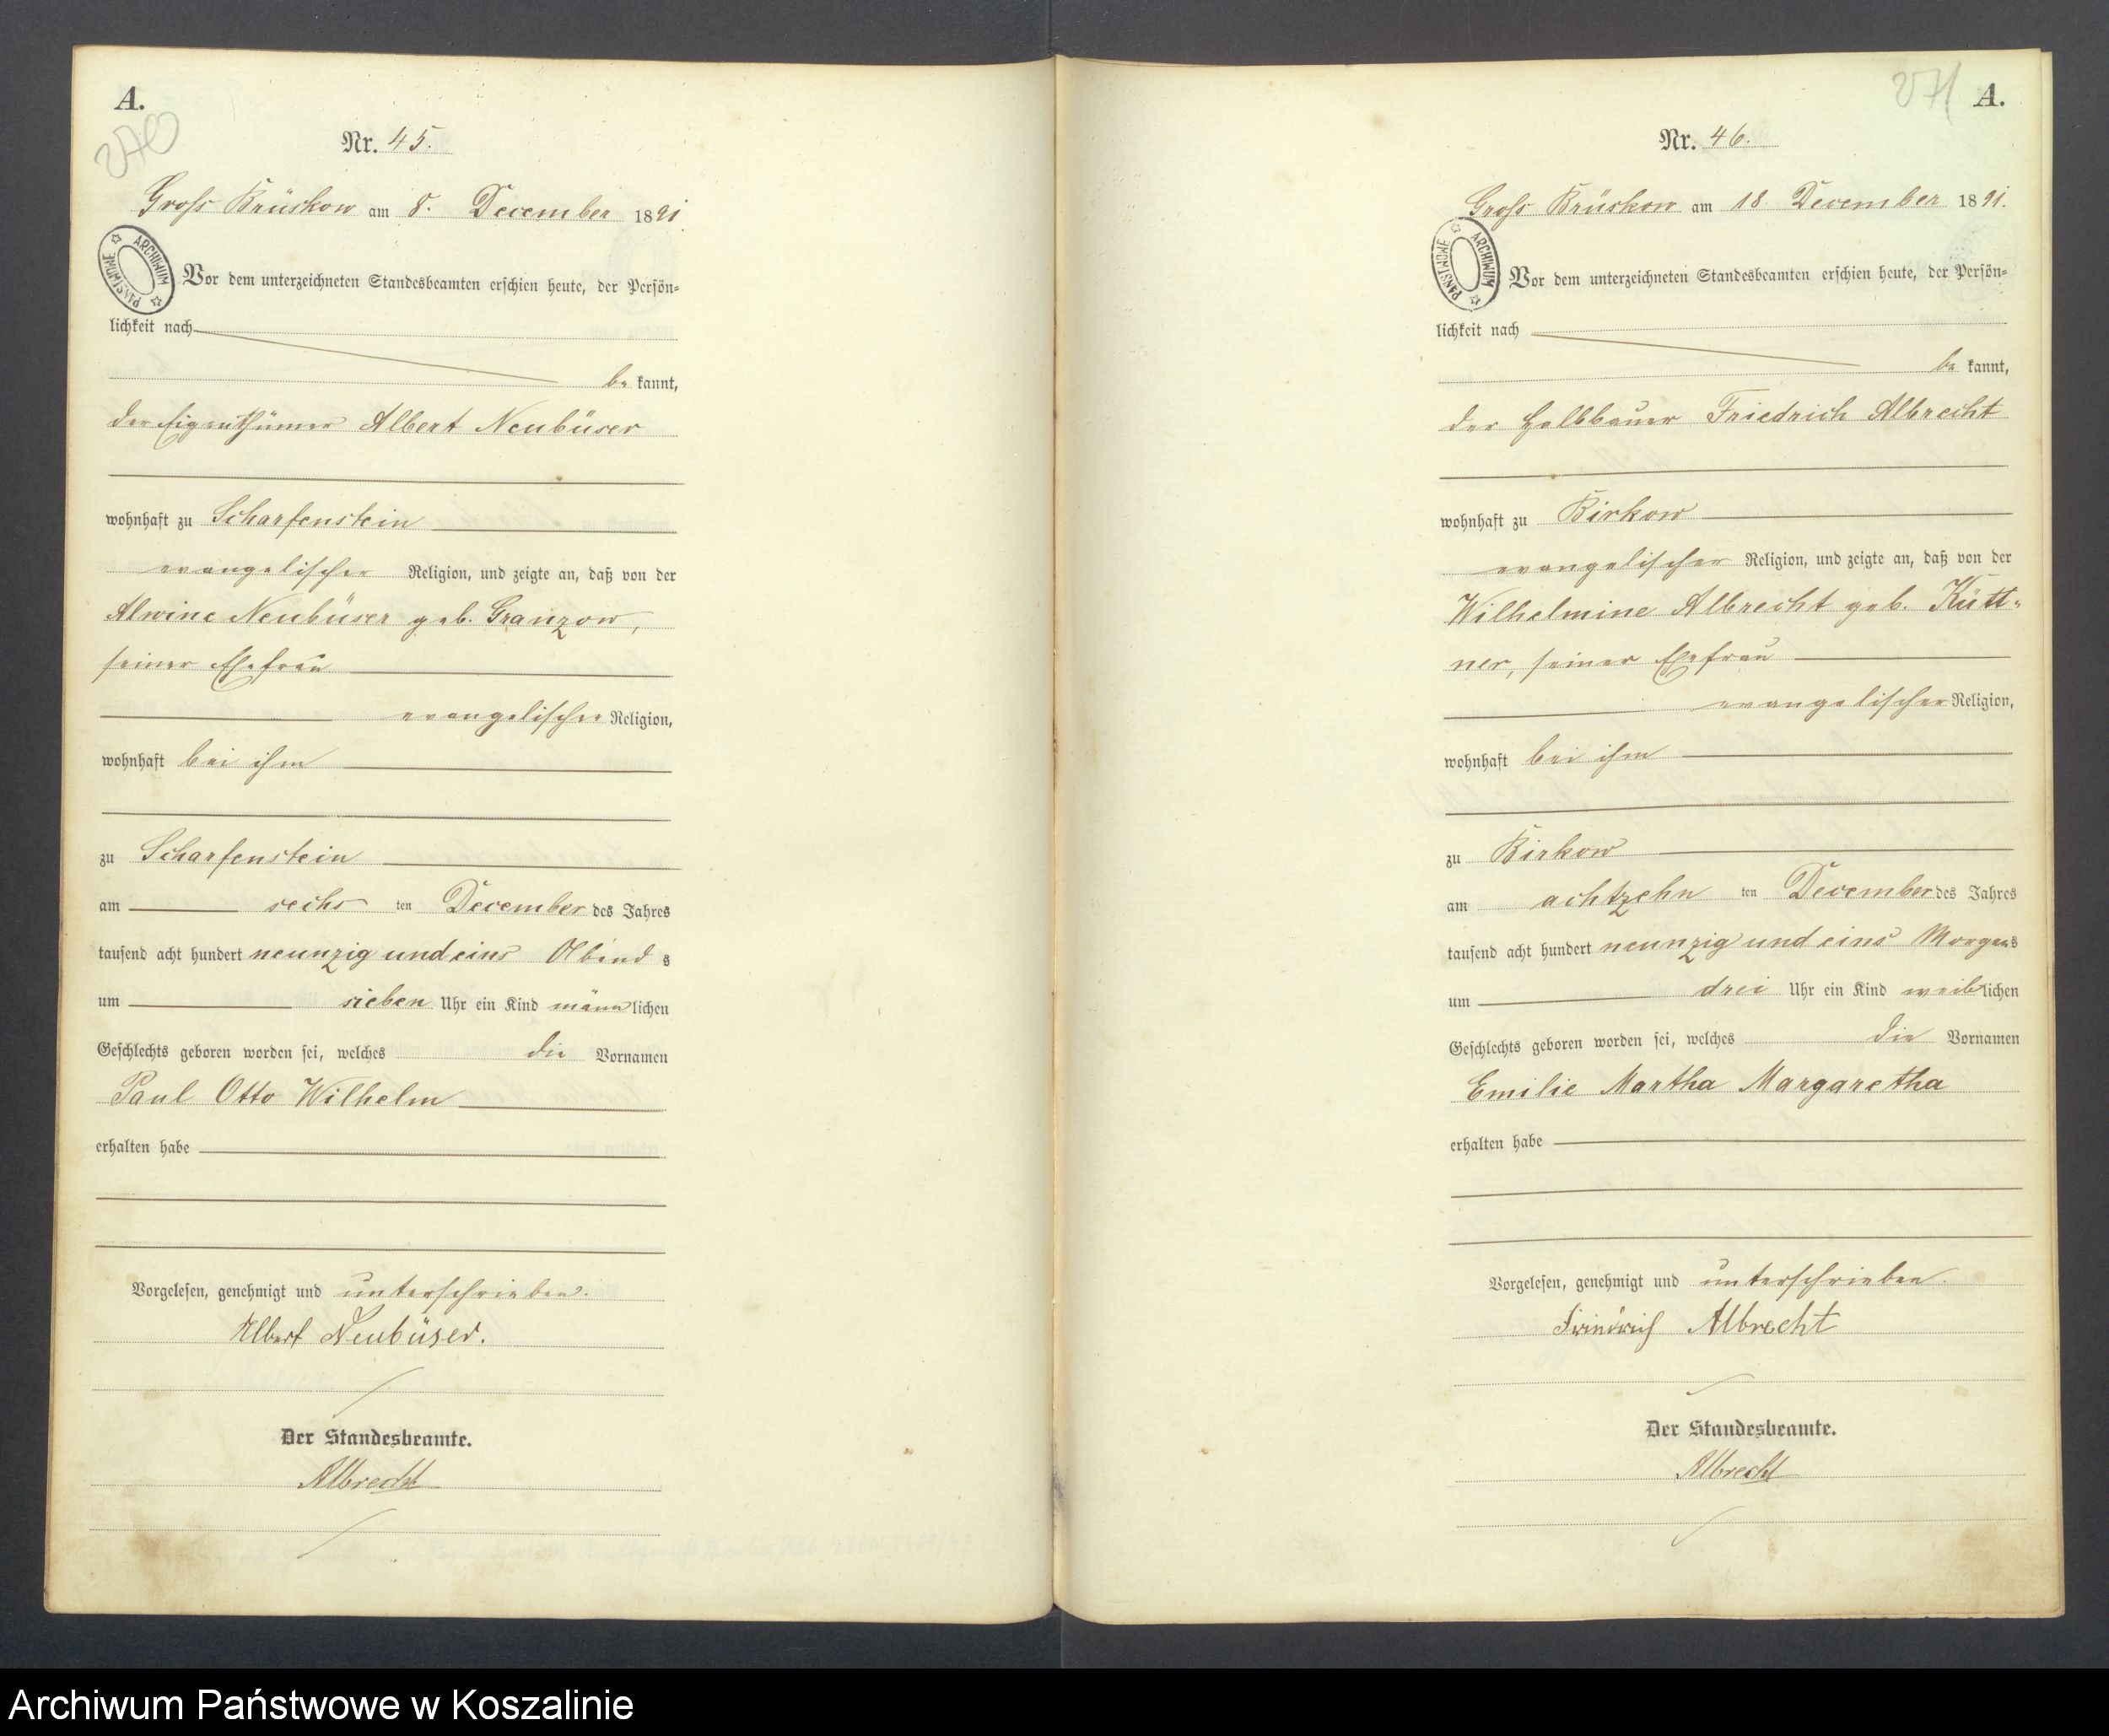 A.
270
Nr. 45.
Gross Brüskow am 8. December 1891.
ARCHIWUM PAŃSTWOWE
Vor dem unterzeichneten Standesbeamten erschien heute, der Persön-
lichkeit nach
be kannt,
der Eigenthümer Albert Neubüser
wohnhaft zu Scharfenstein
evangelischer Religion, und zeigte an, daß von der
Alwine Neubüser geb. Granzow,
seiner Ehefrau
evangelischer Religion,
wohnhaft bei ihm
zu Scharfenstein
am sechs ten December des Jahres
tausend acht hundert neunzig und eins Abend s
um sieben Uhr ein Kind männlichen
Geschlechts geboren worden sei, welches die Vornamen
Paul Otto Wilhelm
erhalten habe
Vorgelesen, genehmigt und unterschrieben.
Albert Neubüser.
Der Standesbeamte.
Albrecht
271 A.
Nr. 46.
Gross Brüskow am 18. December 1891.
ARCHIWUM PAŃSTWOWE
Vor dem unterzeichneten Standesbeamten erschien heute, der Persön-
lichkeit nach
be kannt,
der Halbbauer Friedrich Albrecht
wohnhaft zu Birkow
evangelischer Religion, und zeigte an, daß von der
Wilhelmine Albrecht geb. Kütt-
ner, seiner Ehefrau
evangelischer Religion,
wohnhaft bei ihm
zu Birkow
am achtzehn ten December des Jahres
tausend acht hundert neunzig und eins Morgens
um drei Uhr ein Kind weiblichen
Geschlechts geboren worden sei, welches die Vornamen
Emilie Martha Margaretha
erhalten habe
Vorgelesen, genehmigt und unterschrieben.
Friedrich Albrecht
Der Standesbeamte.
Albrecht
Archiwum Państwowe w Koszalinie